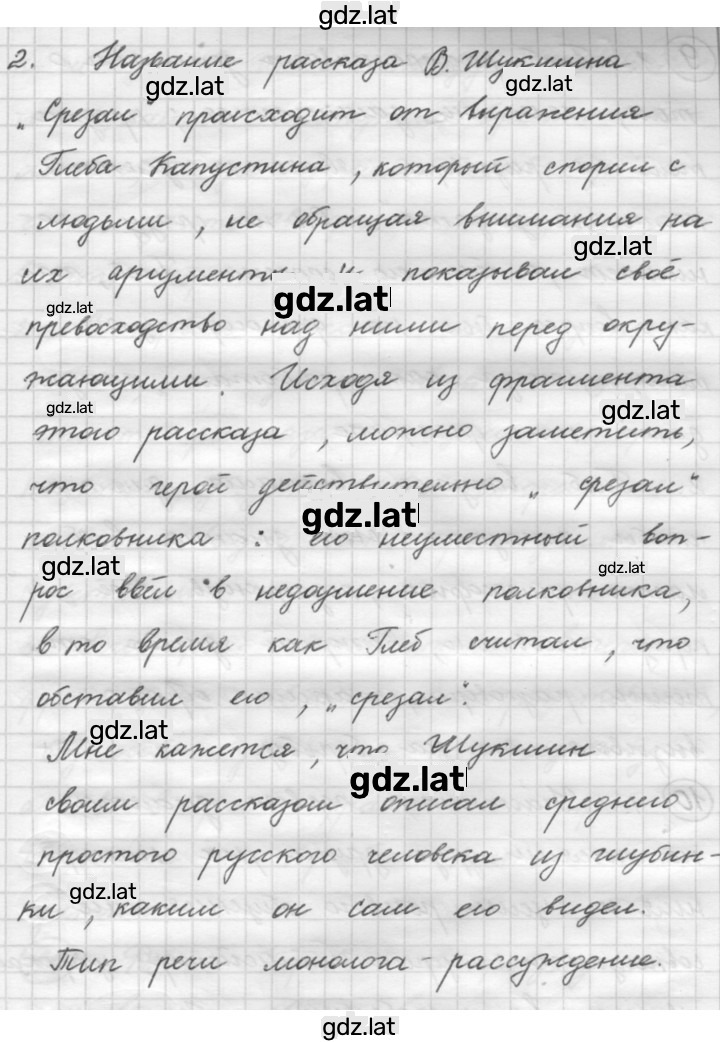 gdz.lat
2. Название рассказа В. Шукшина
gdz.lat gdz.lat
„Срезал" происходит от выражения
Глеба Капустина, который спорил с
людьми, не обращая внимания на
gdz.lat
их аргументы и показывал своё
gdz.lat gdz.lat
превосходство над ними перед окру-
жающими. Исходя из фрагмента
gdz.lat gdz.lat
этого рассказа, можно заметить,
что герой действительно „срезал"
gdz.lat
полковника: его неуместный воп-
gdz.lat gdz.lat
рос ввёл в недоумение полковника,
в то время как Глеб считал, что
обставил его, „срезал".
gdz.lat
Мне кажется, что Шукшин
gdz.lat
своим рассказом описал среднего
простого русского человека из глубин-
gdz.lat
ки, каким он сам его видел.
Тип речи монолога - рассуждение.
gdz.lat